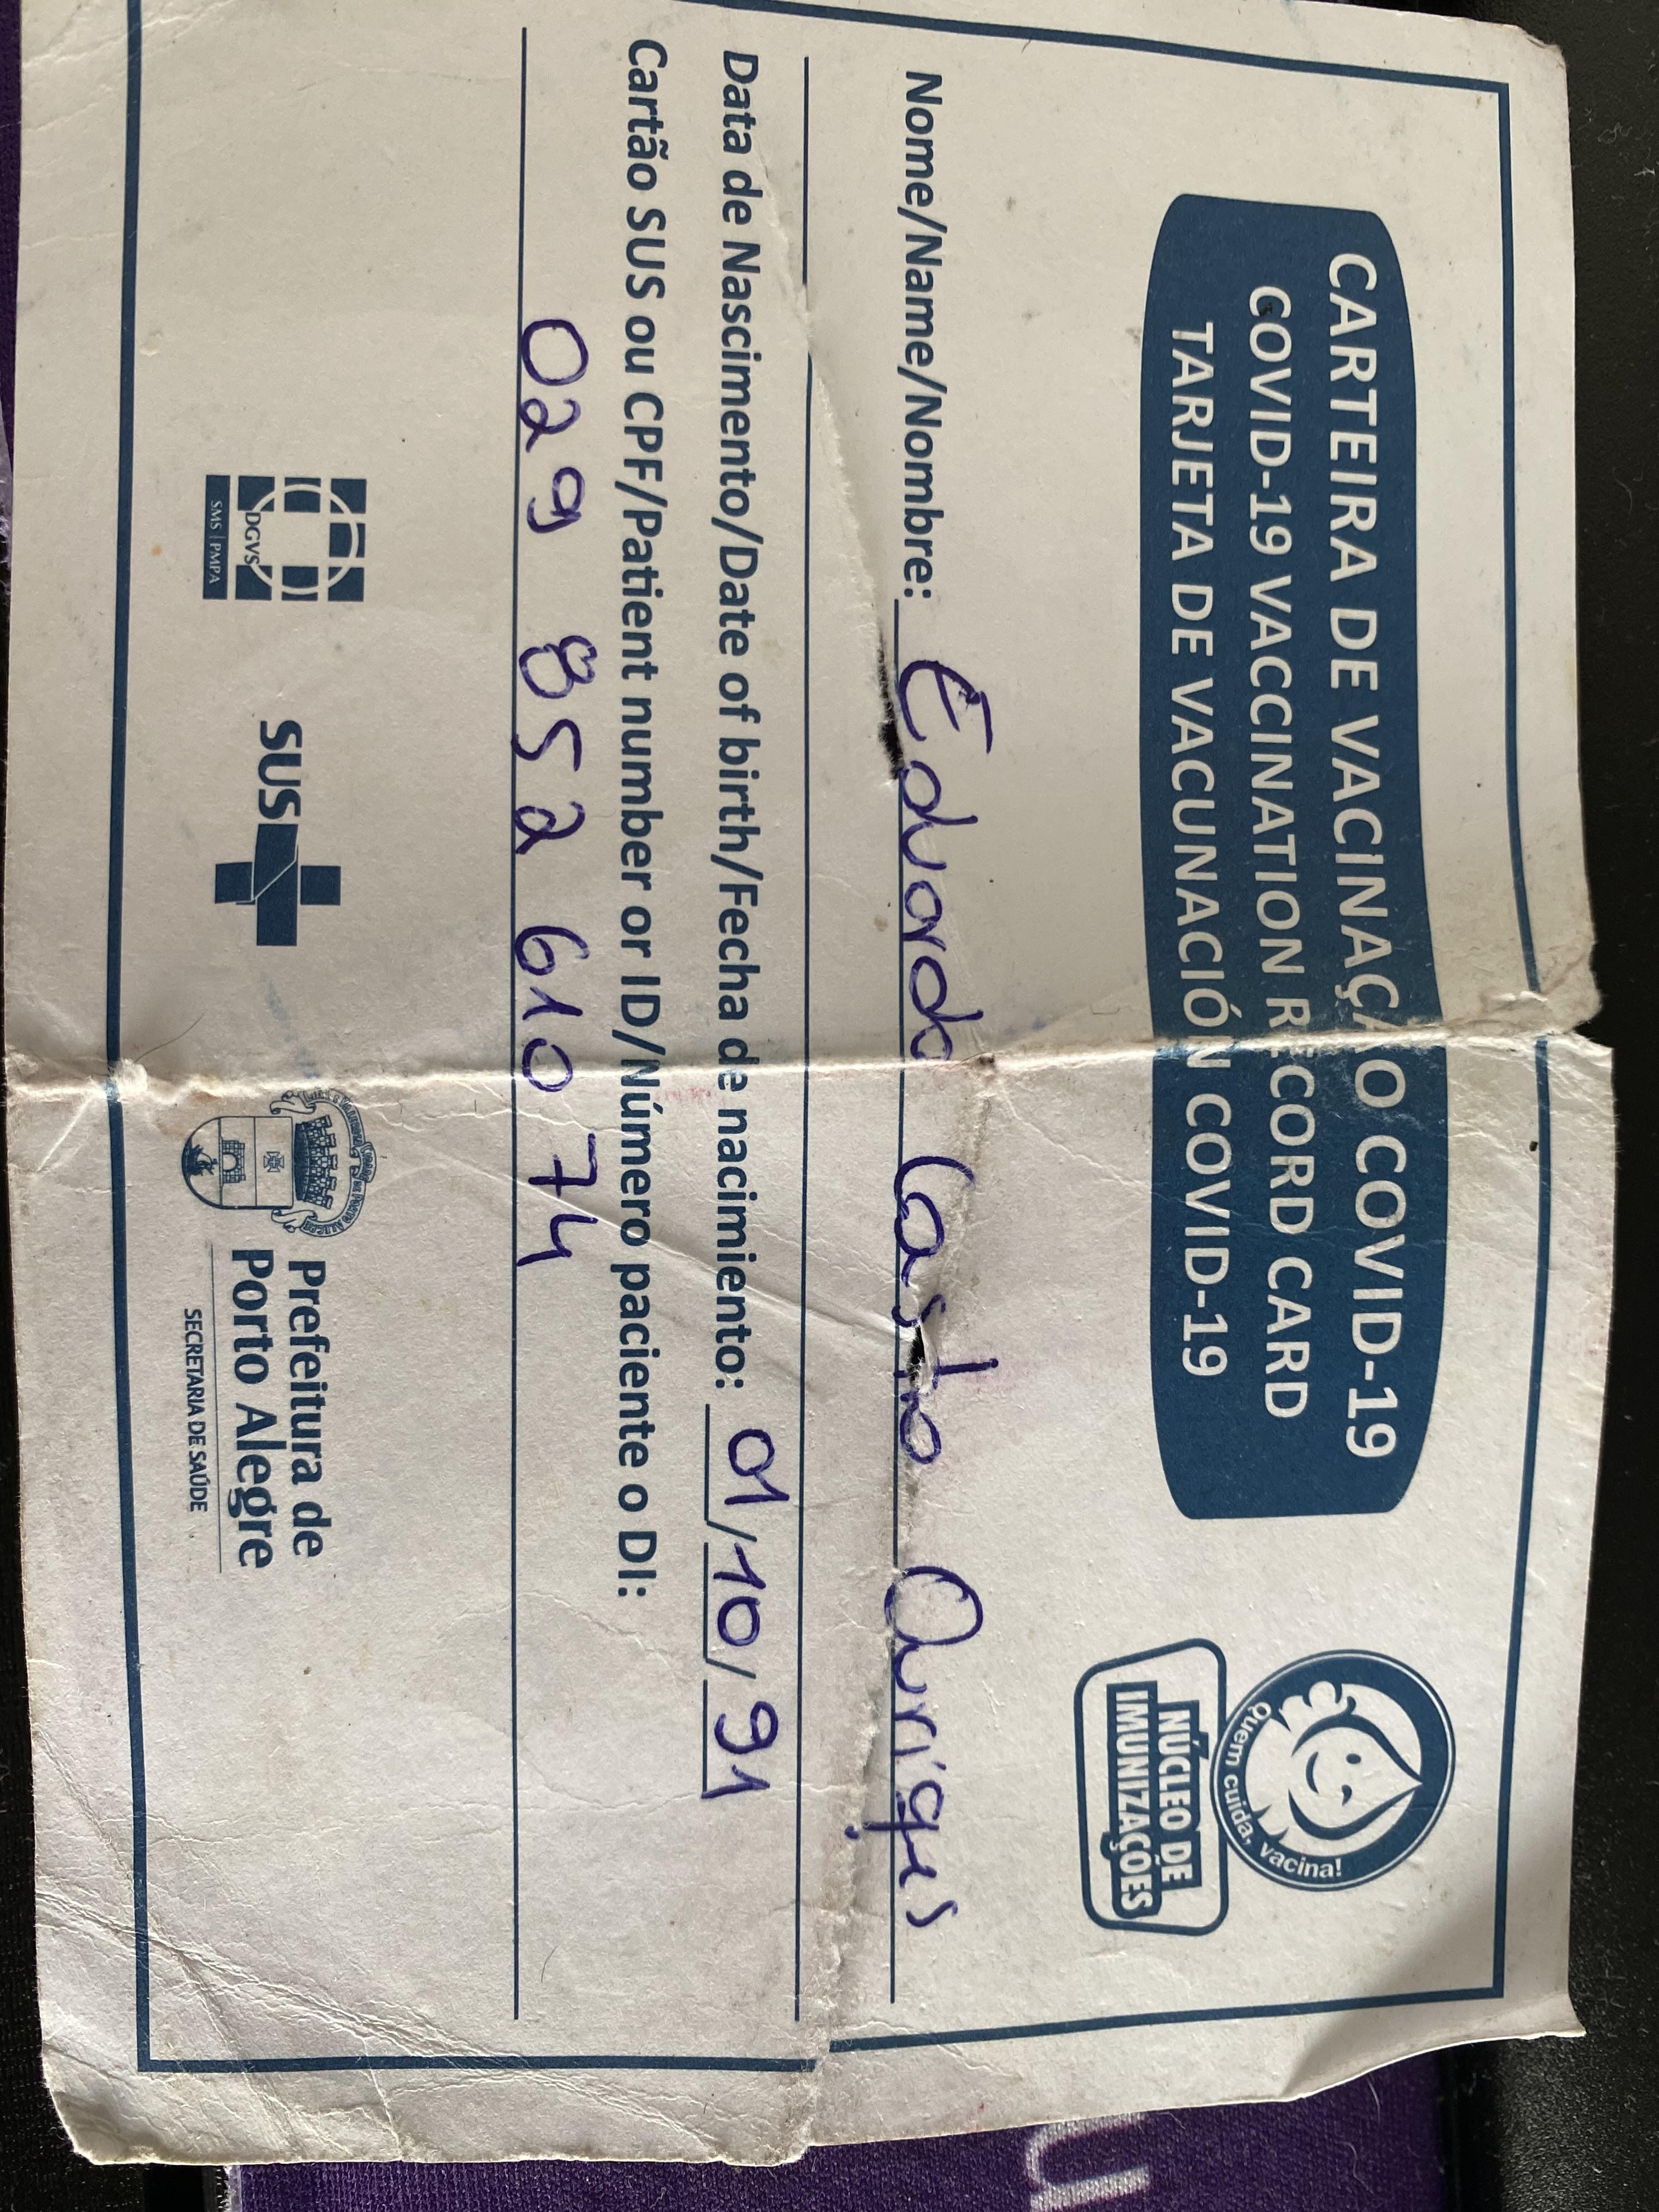 CARTEIRA DE VACINAÇÃO COVID-19
COVID-19 VACCINATION RECORD CARD
TARJETA DE VACUNACIÓN COVID-19
Quem cuida, vacina!
NÚCLEO DE
IMUNIZAÇÕES
Nome/Name/Nombre: Eduardo Castro Ouriques
Data de Nascimento/Date of birth/Fecha de nacimiento: 01/10/91
Cartão SUS ou CPF/Patient number or ID/Número paciente o DI:
029 852 610 74
DGVS
SMS | PMPA
SUS
Prefeitura de
Porto Alegre
SECRETARIA DE SAÚDE